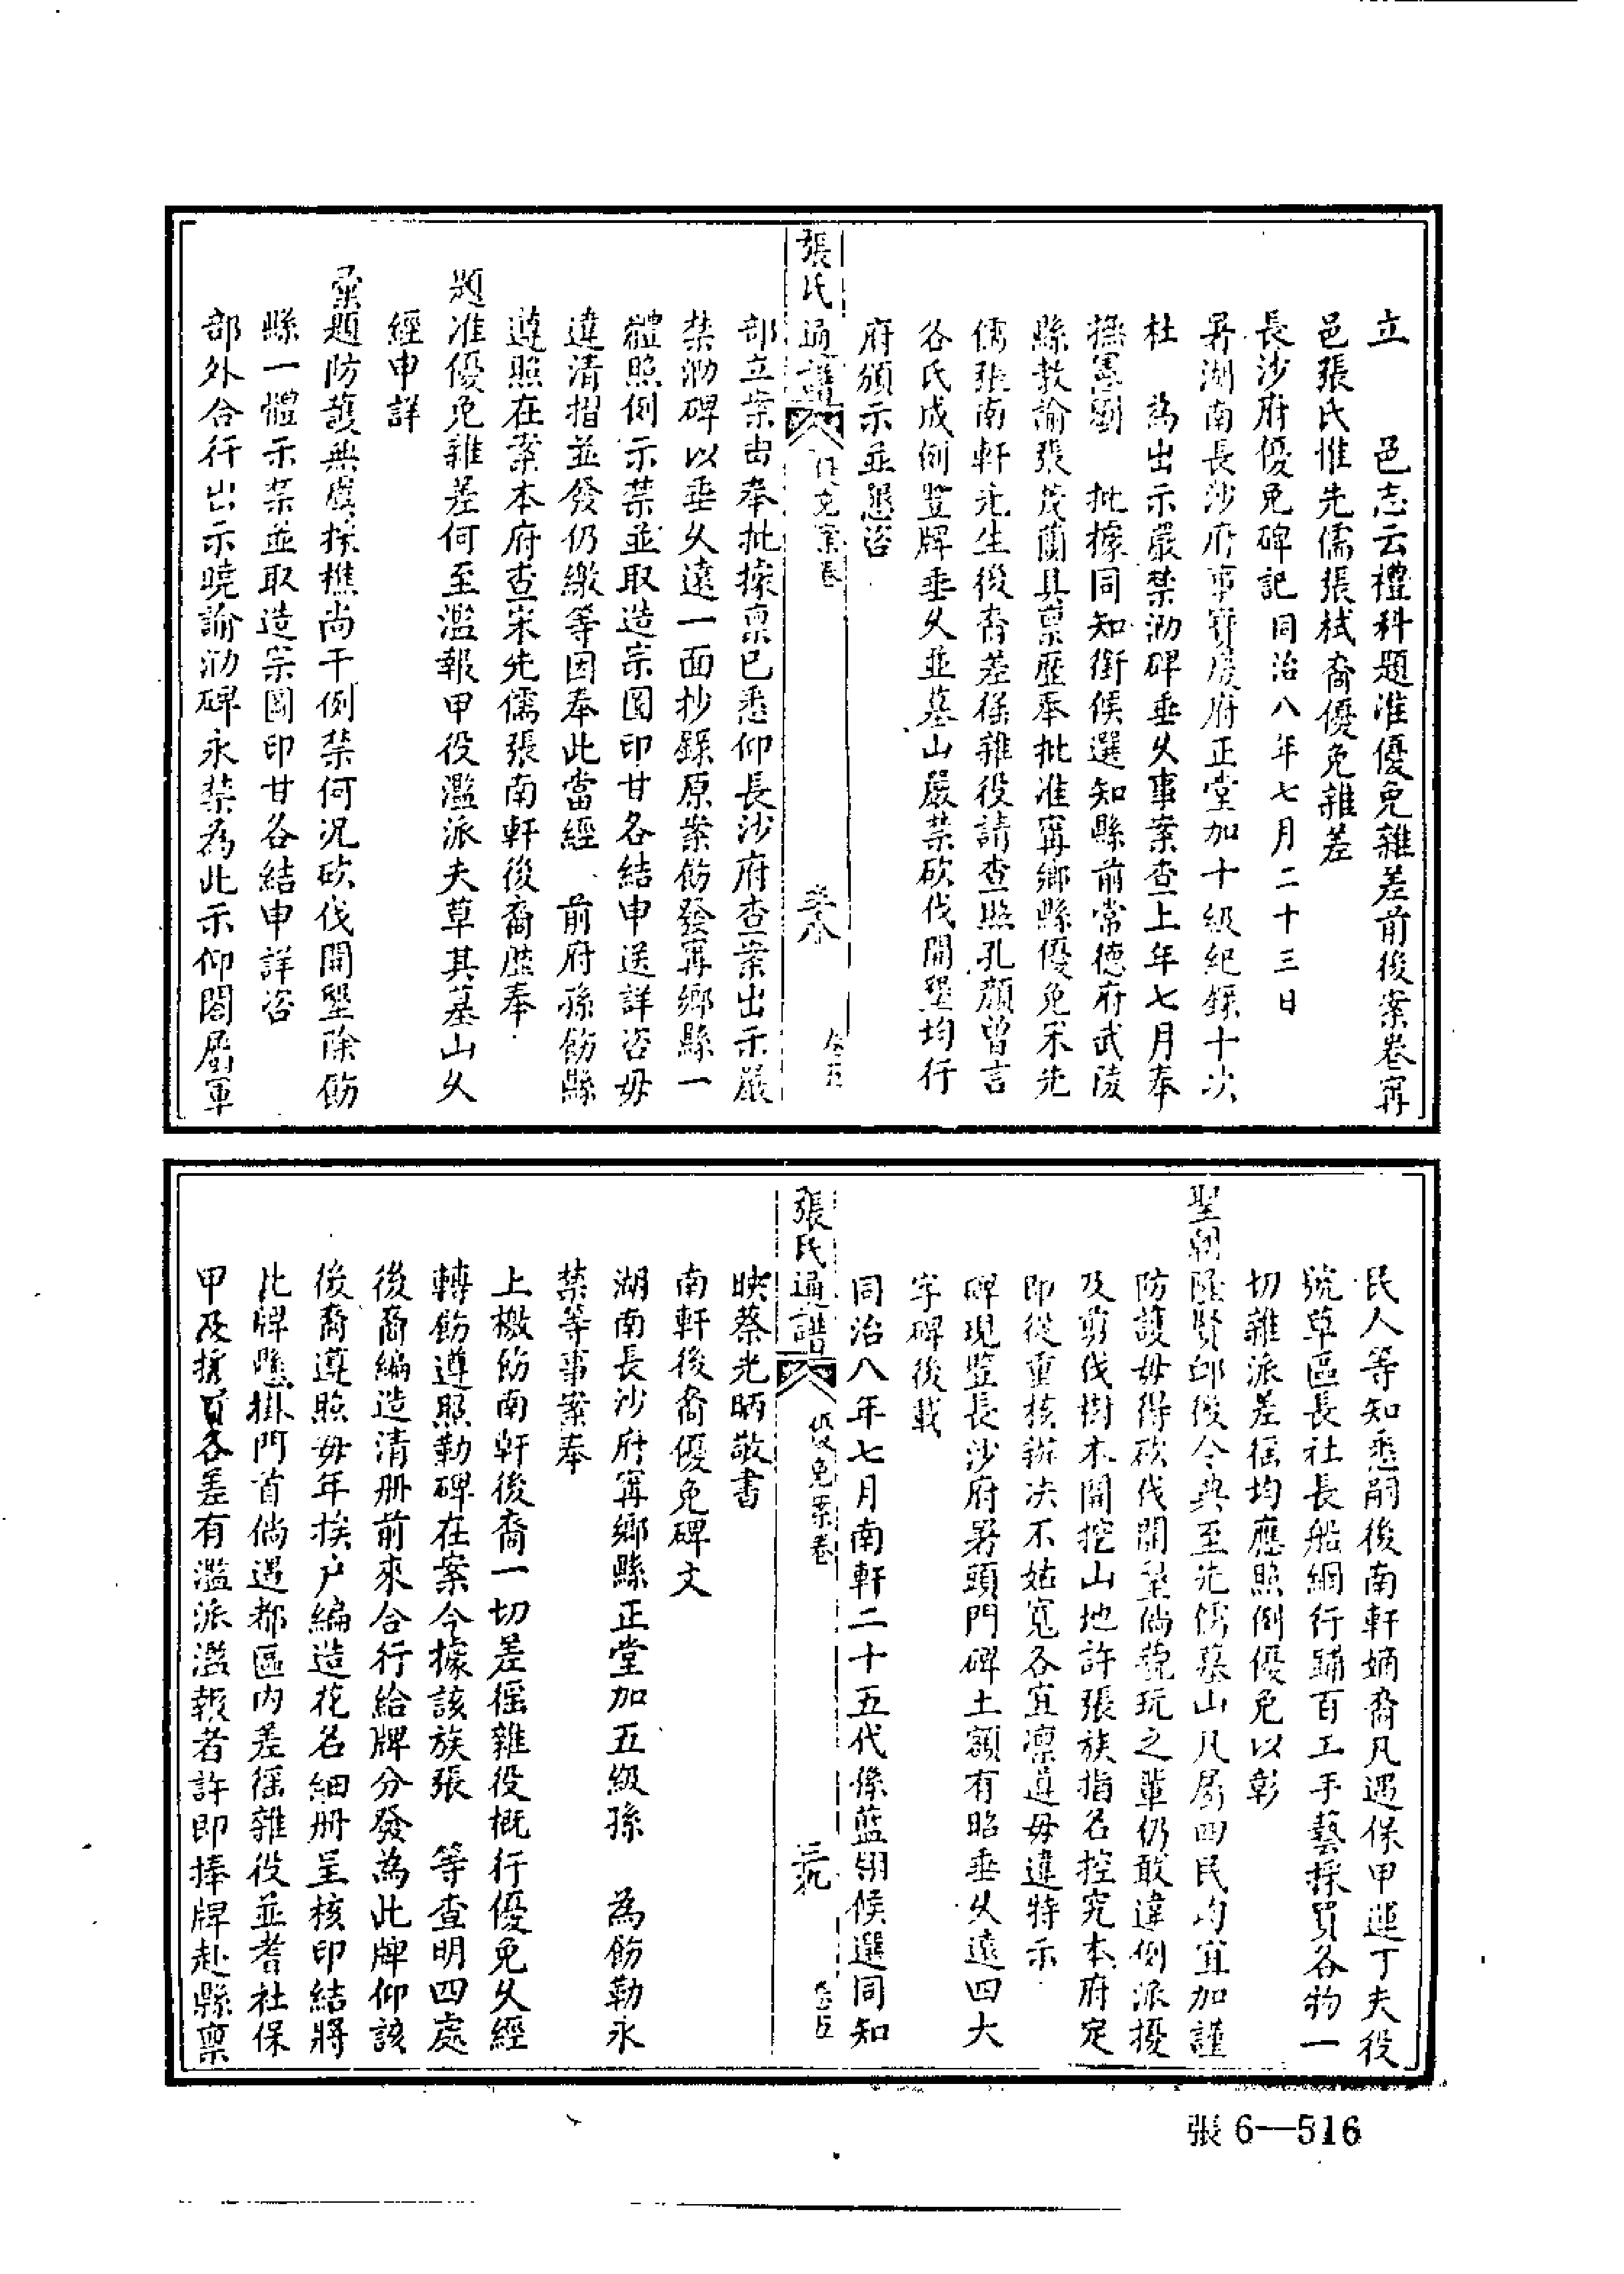 立　邑志云禮科題准優免雜差前後案卷甯
邑張氏惟先儒張栻裔優免雜差
長沙府優免碑記同治八年七月二十三日
署湖南長沙府事寶慶府正堂加十級紀錄十次
杜　為出示嚴禁泐碑垂久事案查上年七月奉
撫憲劉　批據同知銜候選知縣前常德府武陵
縣教諭張茂蘭具稟歷奉批准甯鄉縣優免宋先
儒張南軒先生後裔差徭雜役請查照孔顏曾言
各氏成例豎牌垂久並墓山嚴禁砍伐開墾均行
府頒示並懇咨
張氏通譜　優免案卷　三八　卷五
部立案由奉批據稟已悉仰長沙府查案出示嚴
禁泐碑以垂久遠一面抄錄原案飭發甯鄉縣一
體照例示禁並取造宗圖印甘各結申送詳咨毋
違清摺並發仍繳等因奉此當經　前府孫飭縣
遵照在案本府查宋先儒張南軒後裔歷奉
題准優免雜差何至濫報甲役濫派夫草其墓山久
經申詳
彙題防護無虞採樵尚干例禁何況砍伐開墾除飭
縣一體示禁並取造宗圖印甘各結申詳咨
部外合行出示曉諭泐碑永禁為此示仰闔屬軍
民人等知悉嗣後南軒嫡裔凡遇保甲運丁夫役
號草區長社長船綱行鋪百工手藝採買各物一
切雜派差徭均應照例優免以彰
聖朝隆賢卹後令典至先儒墓山凡屬四民均宜加謹
防護毋得砍伐開墾倘藐玩之輩仍敢違例派擾
及剪伐樹木開挖山地許張族指名控究本府定
即從重核辦决不姑寬各宜凜遵毋違特示
碑現豎長沙府署頭門碑土額有昭垂久遠四大
字碑後載
同治八年七月南軒二十五代條藍翎候選同知
張氏通譜　優免案卷　三九　卷五
映蔡光昞敬書
南軒後裔優免碑文
湖南長沙府甯鄉縣正堂加五級孫　為飭勒永
禁等事案奉
上檄飭南軒後裔一切差徭雜役概行優免久經
轉飭遵照勒碑在案今據該族張　等查明四處
後裔編造清册前來合行給牌分發為此牌仰該
後裔遵照毋年挨户編造花名細册呈核印結將
此牌懸掛門首倘遇都區內差徭雜役並耆社保
甲及採買各差有濫派濫報者許即捧牌赴縣稟
張6—516